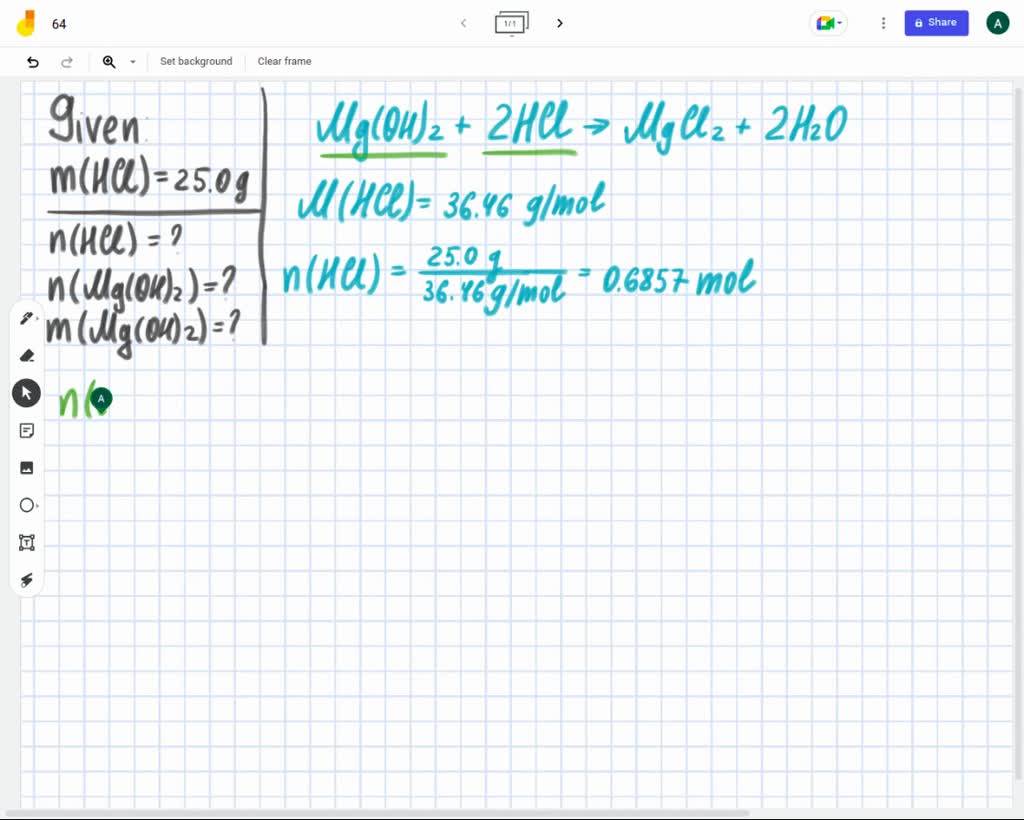 64
1/1
Share
A
Set background
Clear frame
Given:
m(HCl) = 25.0 g
n(HCl) = ?
n(Mg(OH)2) = ?
m(Mg(OH)2) = ?
Mg(OH)2 + 2HCl → MgCl2 + 2H2O
M(HCl) = 36.46 g/mol
n(HCl) = 25.0 g / 36.46 g/mol = 0.6857 mol
n(
A